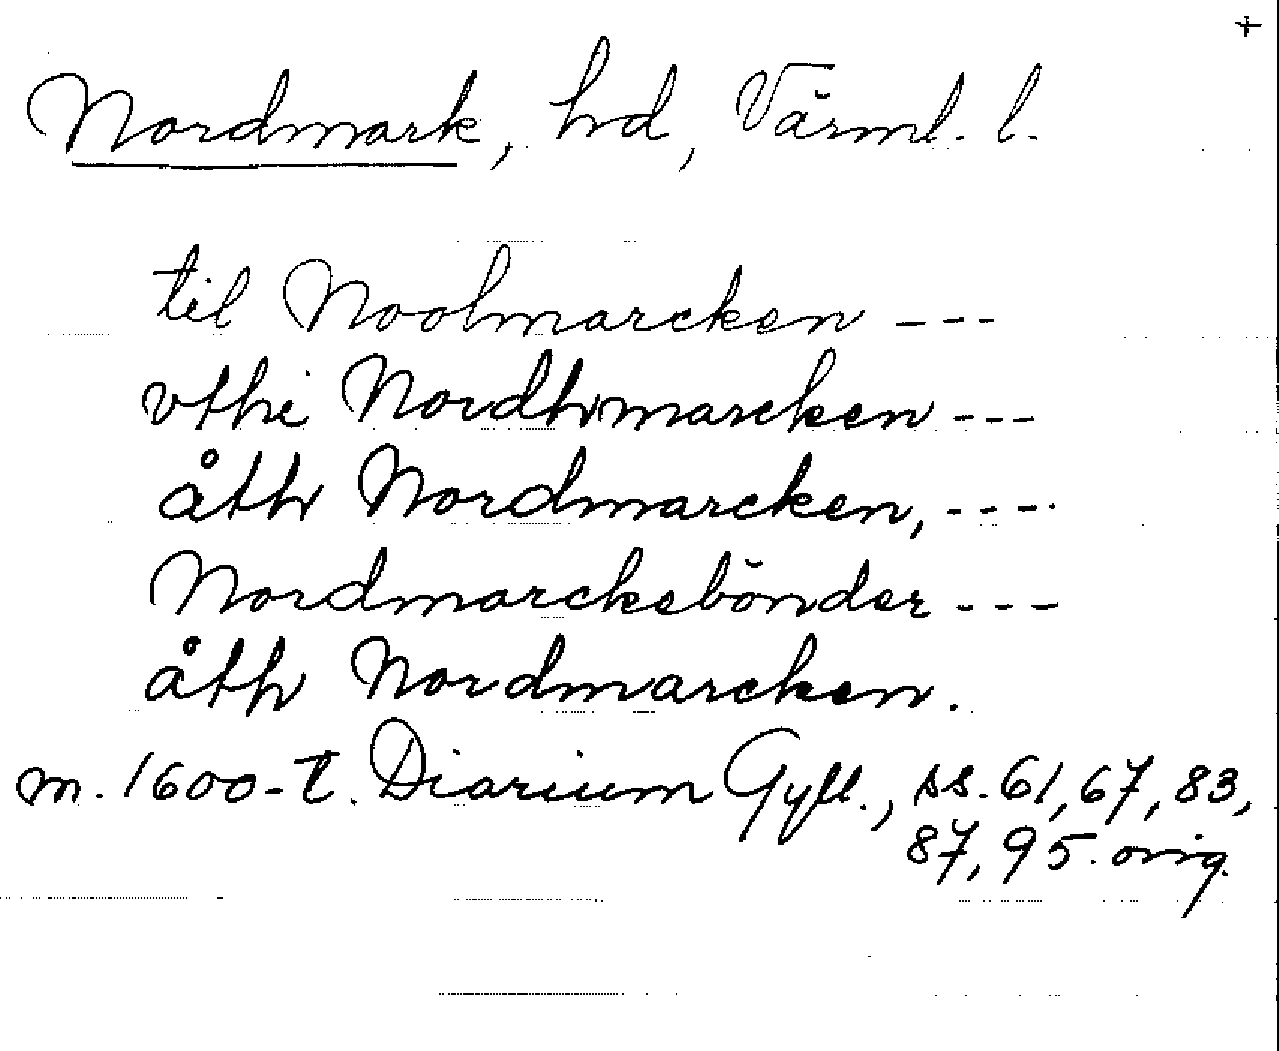 +
Nordmark, hd, Värml. l.
til Noolmarcken ---
vthi Nordhmarcken ---
åth Nordmarcken, ----
Nordmarckebönder ---
åth Nordmarcken.
m. 1600-t. Diarium Gyll., ss. 61, 67, 83,
87, 95. orig.